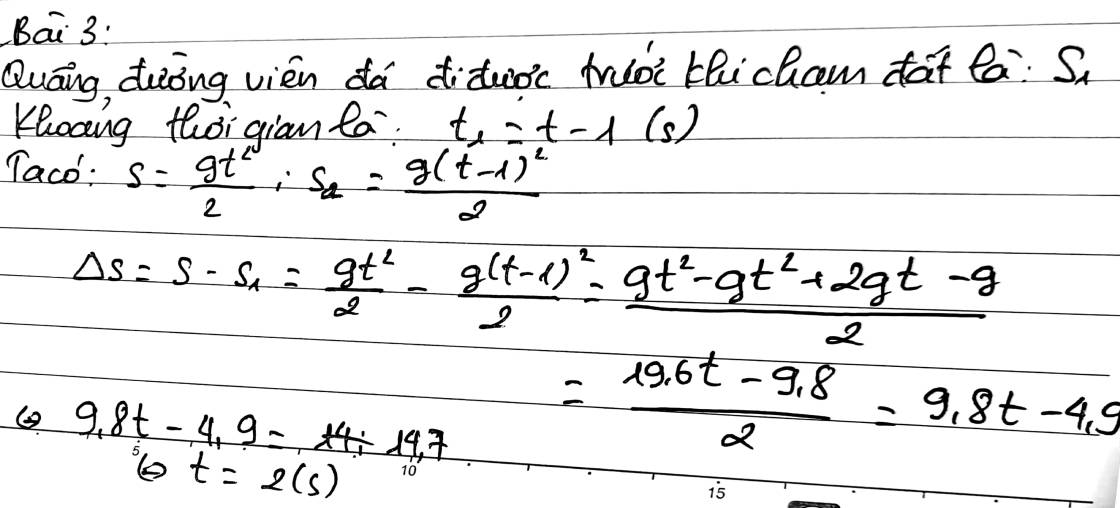 Bài 3:
Quãng đường viên đá đi được trước khi chạm đất là: S₁
Khoảng thời gian là: t₁ = t - 1 (s)
Ta có: s = gt²/2 ; s₁ = g(t-1)²/2
Δs = s - s₁ = gt²/2 - g(t-1)²/2 = (gt² - gt² + 2gt - g)/2
= (19,6t - 9,8)/2 = 9,8t - 4,9
⇔ 9,8t - 4,9 = 14,7
⇔ t = 2(s)
5 10 15